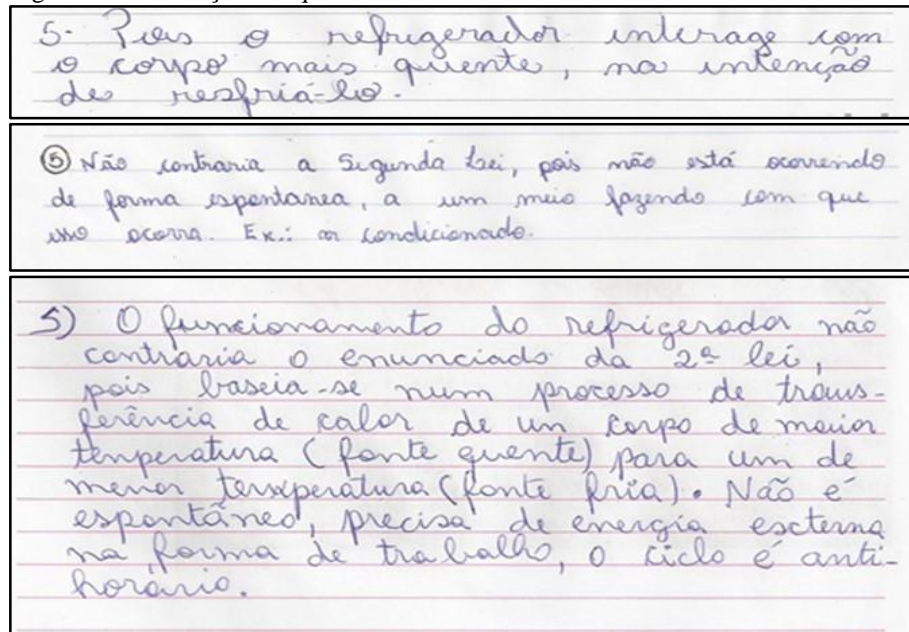 5- Pois o refrigerador interage com
o corpo mais quente, na intenção
de resfriá-lo.
⑤ Não contraria a Segunda Lei, pois não está ocorrendo
de forma espontanea, a um meio fazendo com que
isso ocorra. Ex.: ar condicionado.
5) O funcionamento do refrigerador não
contraria o enunciado da 2ª lei,
pois baseia-se num processo de trans-
ferência de calor de um corpo de maior
temperatura (fonte quente) para um de
menor temperatura (fonte fria). Não é
espontâneo, precisa de energia externa
na forma de trabalho, o ciclo é anti-
horário.